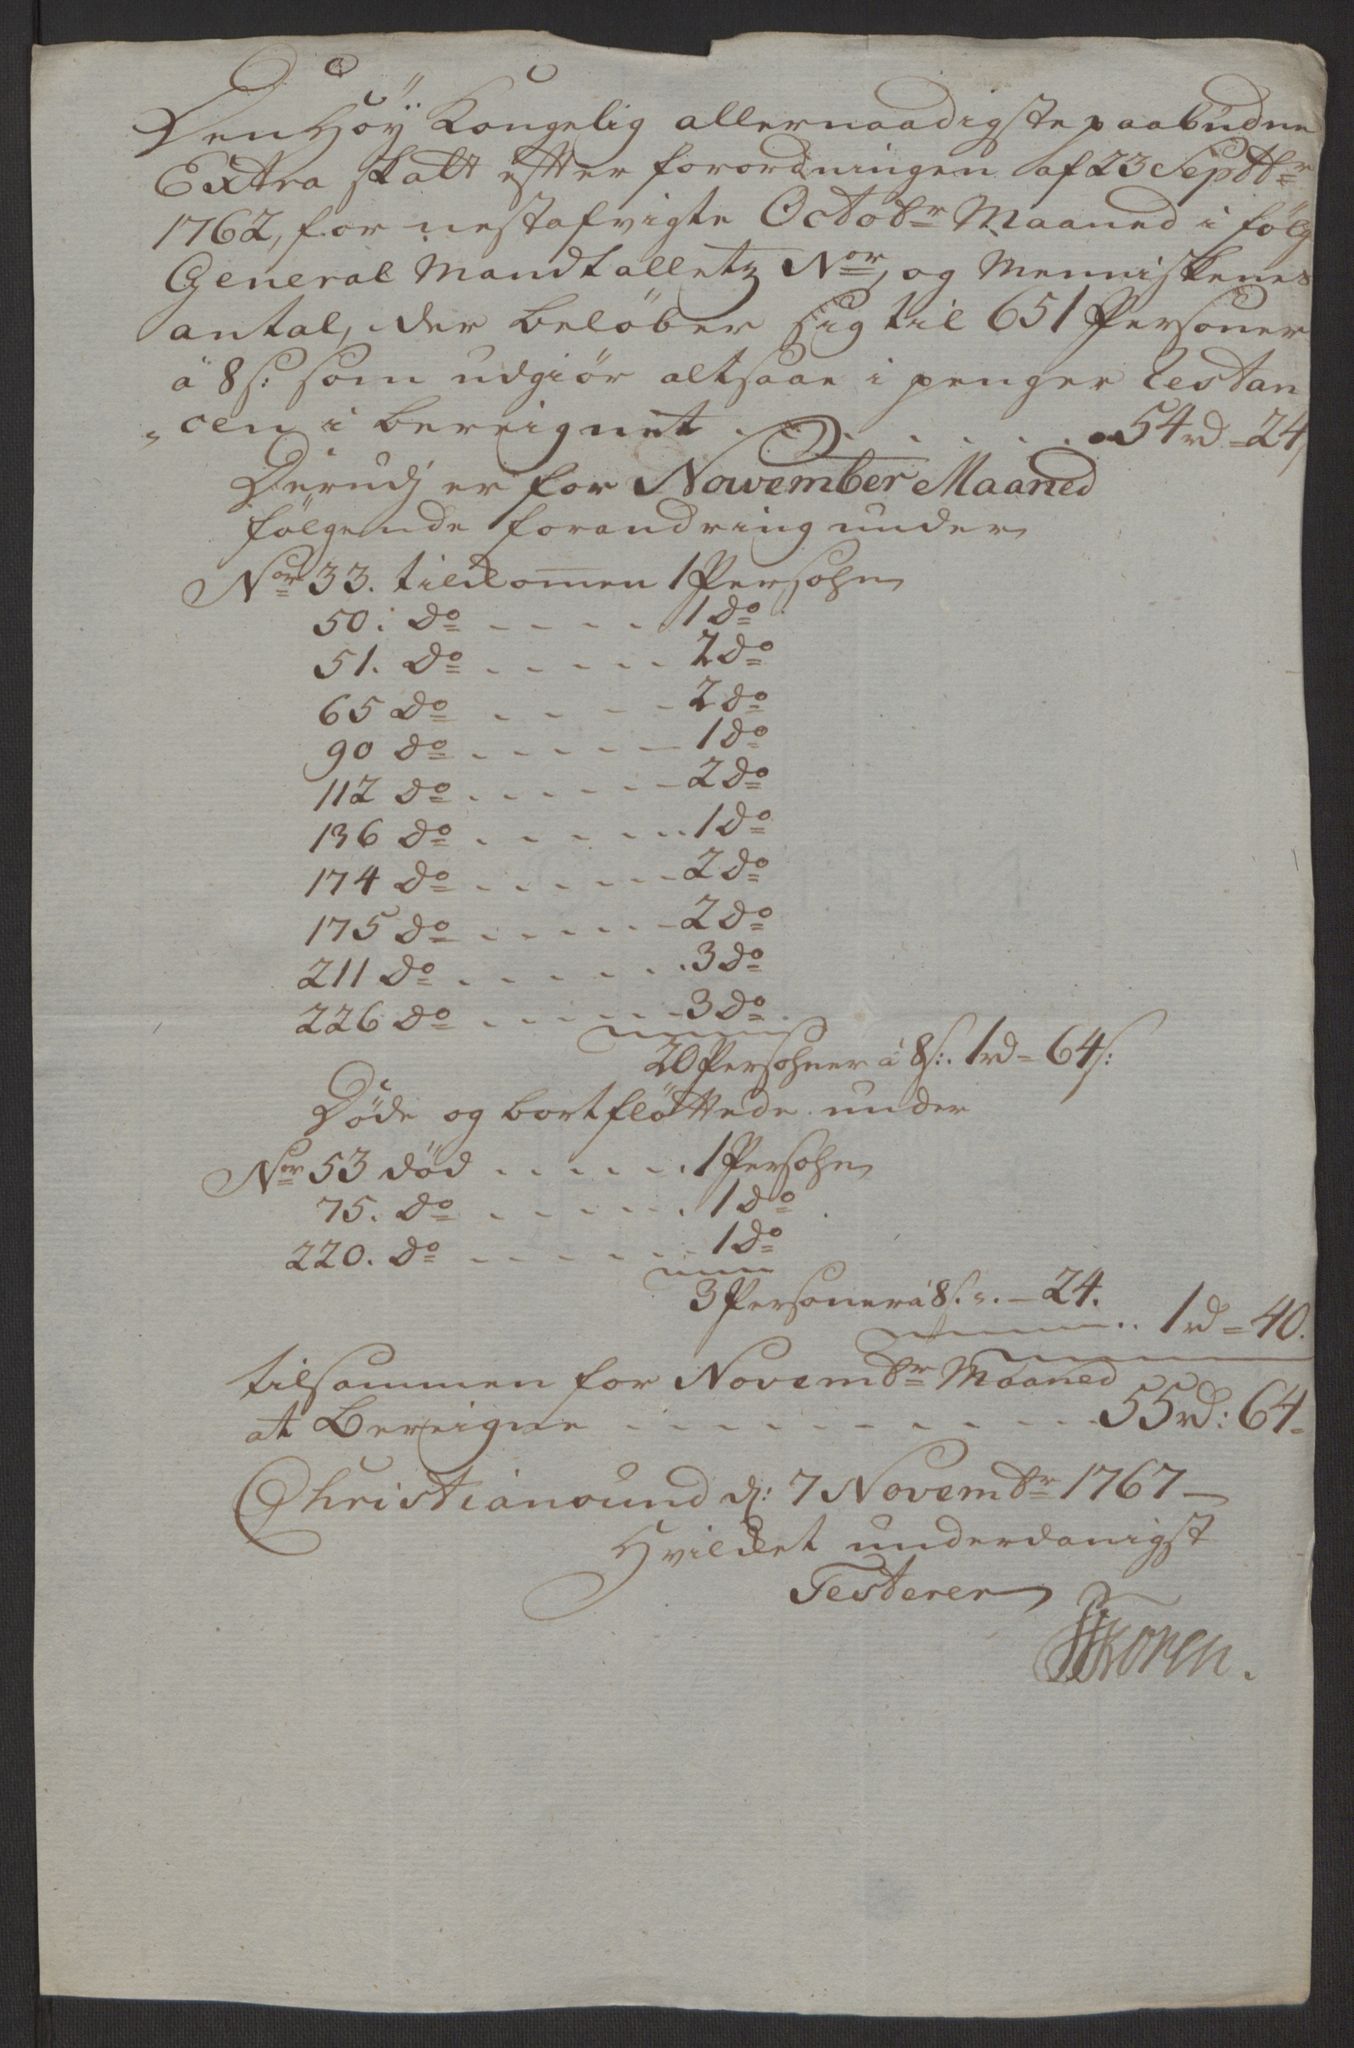 Den Höÿ Kongelig allernaadigste paabudne
Extra skatt efter forordningen af 23 Septbr
1762, for nestafvigte Octobr Maaned i fölg
General Mandtalletz Nor, og Menniskenes
antal, der belöber sig til 651 Personer
a 8 s: som udgiör altsaae i penger
cen i bereignet . . . . . . . 54 rd - 24
Derudj er for November Maaned
fölgende forandring under
Nor 33. tilkomen 1 Persohn
50: do - - - - - 1 do
51. do - - - - - 2 do
65 do - - - - 2 do
90 do - - - - - 1 do
112 do - - - - - 2 do
136 do - - - - - 1 do
174 do - - - - - 2 do
175 do - - - - - 2 do
211 do - - - - - 3 do
226 do - - - - - 3 do
20 Persohner a 8 s: 1 rd - 64 s:
Döde og bortflöttede under
Nor 53 död - - - - - 1 Persohn
75. do - - - - - 1 do
220. do - - - - - 1 do
3 Personer a 8 s. - 24. 1 rd - 40.
tilsammen for Novembr Maaned
at Bereigne - - - - - - - - 55 rd: 64
Christiansund d: 7 Novembr 1767
Hvilket underdanigst
Testerer
Koren.